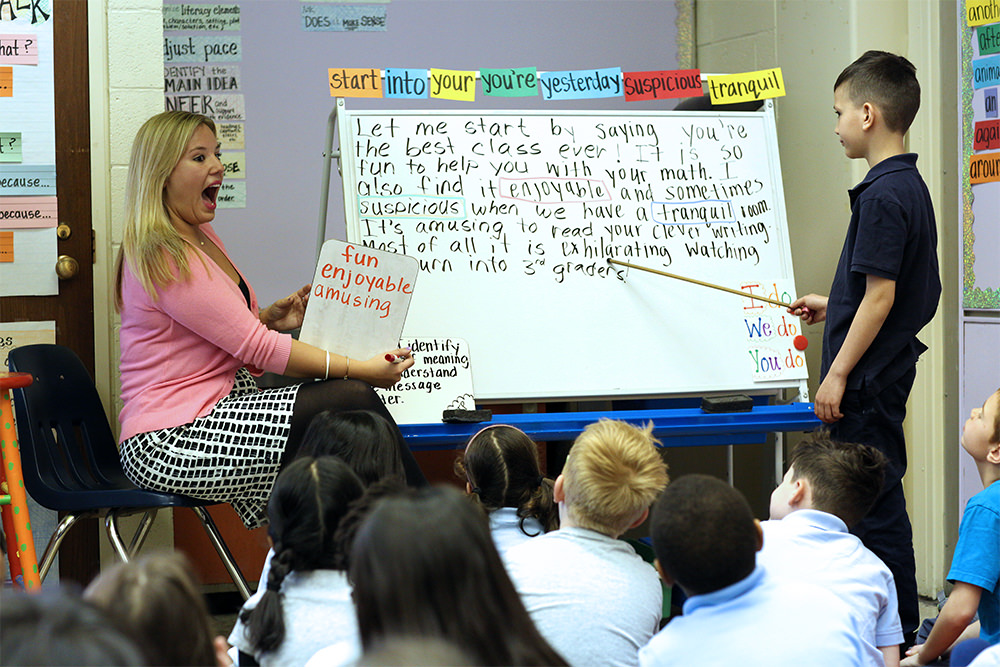 ALK
hat ?
t?
because...
because...
literacy elemen
characters, setting, plot
adjust pace
IDENTIFY the
MAIN IDEA
NEER and support
with evidence
DOES it MAKE SENSE
start into your you're yesterday suspicious tranquil
Let me start by saying you're
the best class ever! It is so
fun to help you with your math. I
also find it enjoyable and sometimes
suspicious when we have a tranquil room.
It's amusing to read your clever writing.
Most of all it is exhilarating watching
turn into 3rd graders!
fun
enjoyable
amusing
identify
meaning
derstand
message
I do
We do
You do
another
after
anima
an
again
aroun